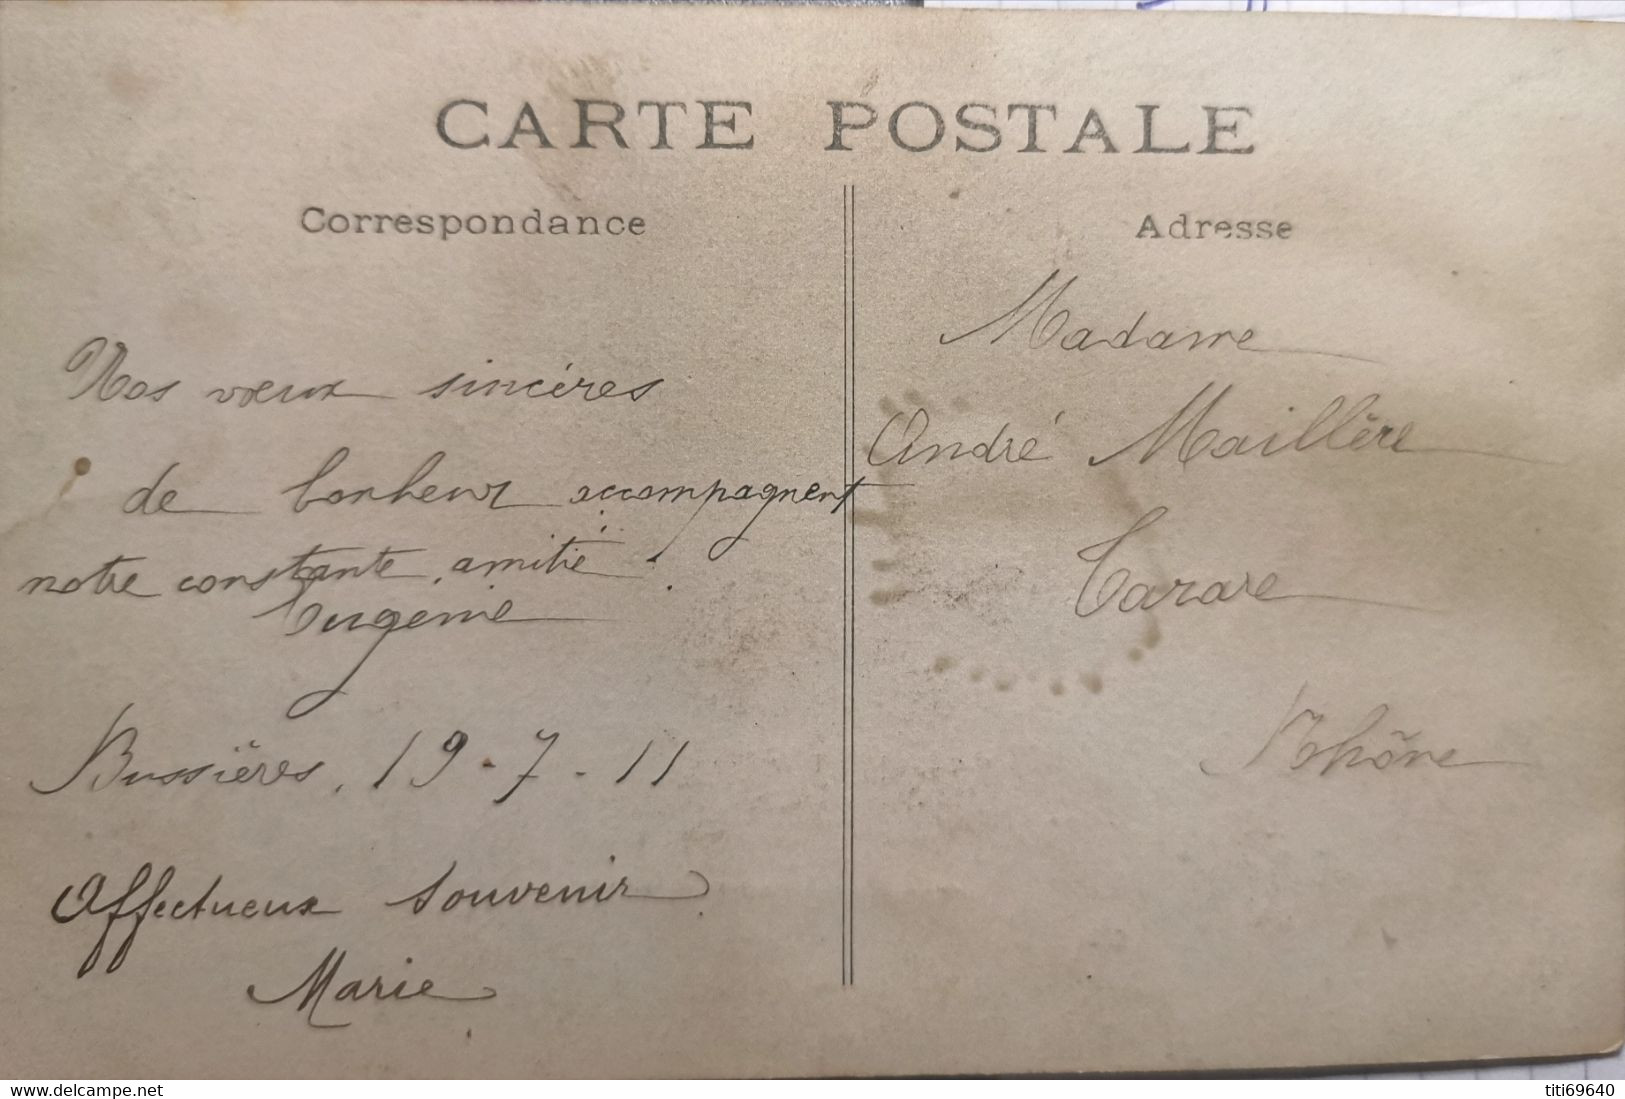 CARTE POSTALE
Correspondance
Nos vœux sincéres
de bonheur accompagnent
notre constante amitié.
Eugenie
Bussières, 19-7-11
Affectueux souvenir
Marie
Adresse
Madame
André Maillère
Tarare
Rhône
www.delcampe.net
titi69640